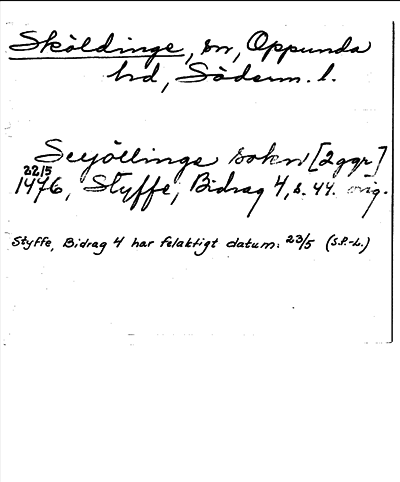 Sköldinge, sn, Oppunda
hd, Söderm. l.
Scyöllinge sokn [2 ggr]
22/5
1476, Styffe, Bidrag 4, s. 44. orig.
Styffe, Bidrag 4 har felaktigt datum: 23/5 (S.P.-L.)